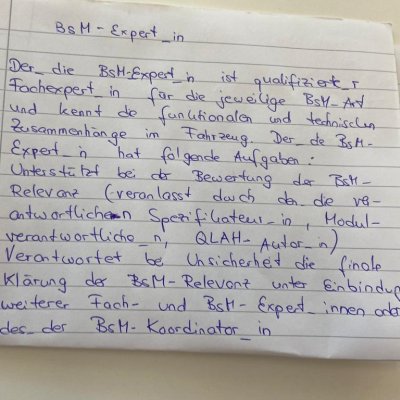 BsM - Expert_in
Der_die BsM-Expert_n ist qualifiziert_r
Fachexpert_in für die jeweilige BsM-Art
und kennt de funktionalen und technischen
Zusammenhänge im Fahrzeug. Der_de BsM-
Expert_n hat folgende Aufgaben:
Unterstützt bei der Bewertung der BsM-
Relevanz (veranlasst durch den_de ver-
antwortlichen Spezifikateur_in, Modul-
verantwortliche_n, QLAH-Autor_n)
Verantwortet be Unsicherheit die finale
Klärung der BsM-Relevanz unter Einbindung
weiterer Fach- und BsM-Expert_innen oder
des_der BsM-Koordinator_in